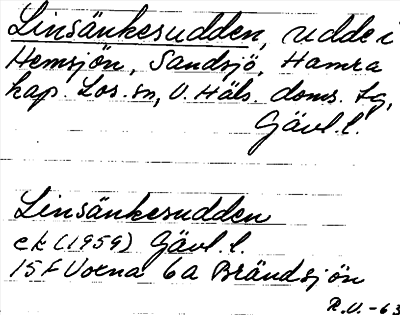 Linsänkesudden, udde i
Hemsjön, Sandsjö, Hamra
kap. Los. sn, V. Häls. doms. tg,
Gävl. l.
Linsänkesudden
ek (1959) Gävl. l.
15F Voxna 6a Brändsjön
R.U. -63